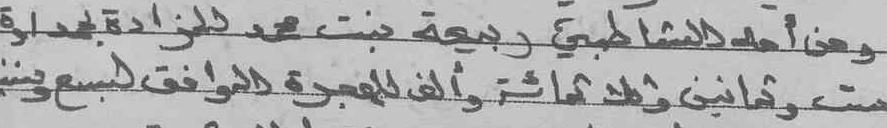 ومن أحمد الشاطبي ربيعة بنت محمد المزادة
ست وثمانين وثلاثمائة وألف للهجرة الموافق لسبع